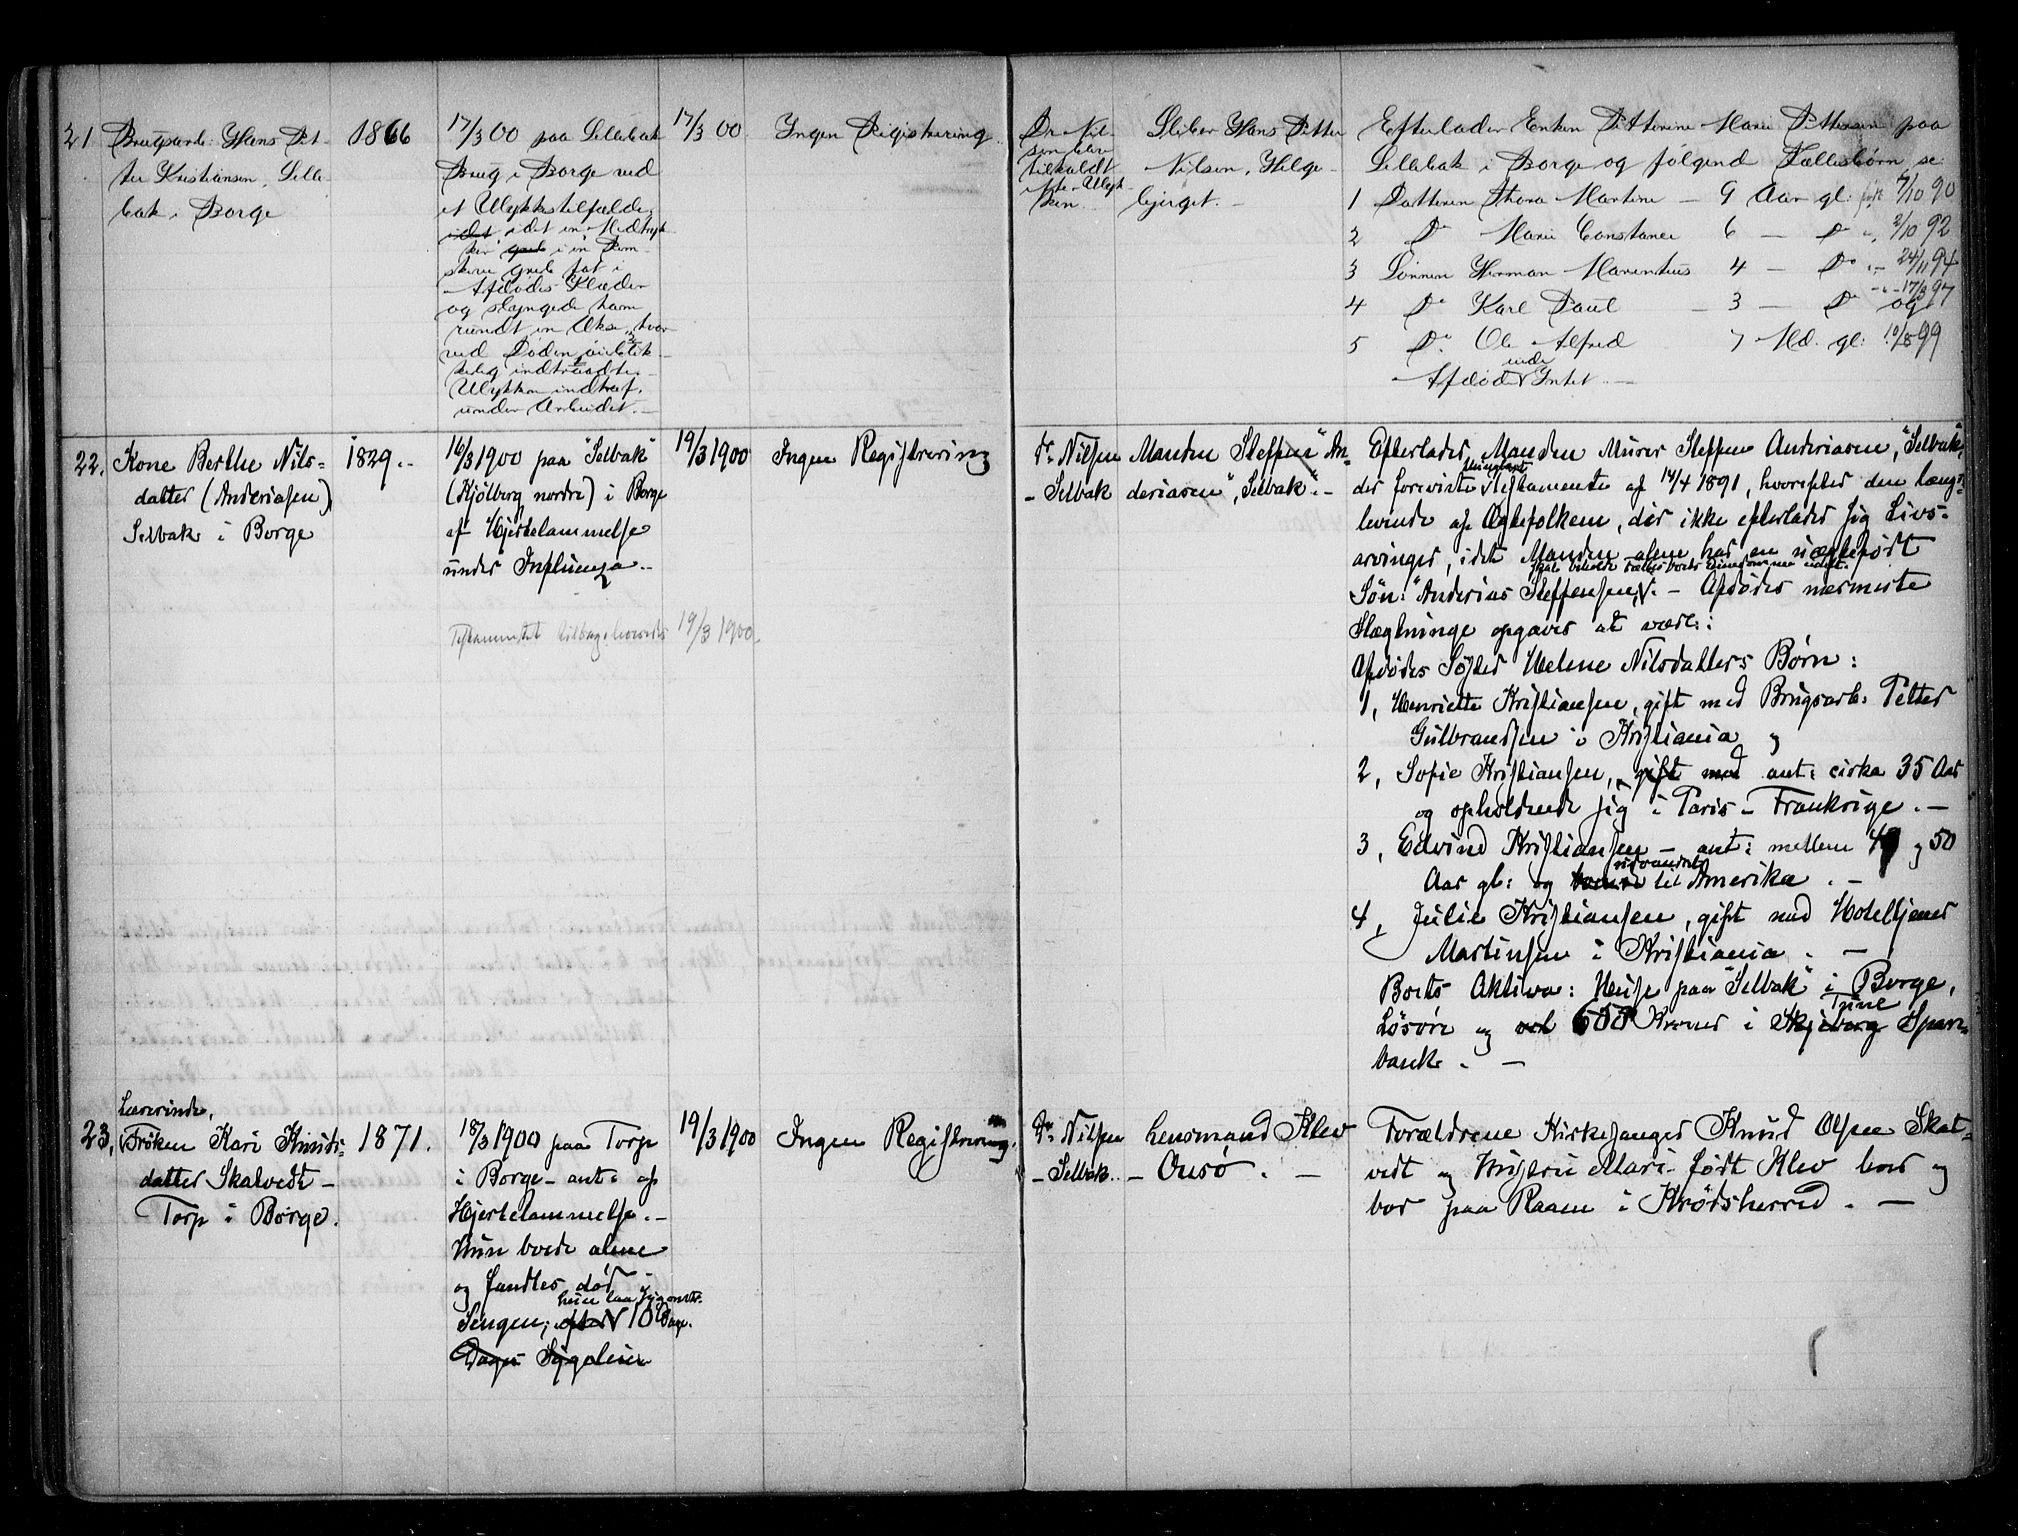 21 Brugsarb: Hans Pet-
ter Kristiansen, Selle-
bak i Borge
1866
17/3 00 paa Sellebak
Brug i Borge ved
et Ulykkestilfælde,
idet
greb fat i
Afdødes Klæder
og slyngede ham
rundt en Akse, hvor
ved Døden øieblik-
kelig indtraadte.
Ulykken indtraf
under Arbeidet. —
17/3 00
Ingen Registrering.
Dr. Nil-
sen blev
tilkaldt
efter Ulyk-
ken.
Sliber Hans Petter
Nilsen, Helge-
bjerget. —
Efterlader Enken Petterine Marie Pettersen paa
Sellebak i Borge og følgende Fællesbørn se:
1 Datteren Thora Martine — 9 Aar gl: født 7/10 90
2 Do Marie Constance 6 — Do „ 2/10 92
3 Sønnen Herman Marentius 4 — Do „ - 24/11 94
4 Do Karl Paul — 3 — Do - „ - 17/2 97
og
5 Do. Ole Alfred 7 Md. gl: 10/8 99
Afdøde eiede Intet. —
22. Kone Berthe Nils=
datter (Anderiasen)
Selbak i Borge
1829. -
16/3 1900 paa "Selbak"
(Kjølberg nordre) i Borge
af Hjertelammelse
under Influenza. -
Testamentet tilbageleveredes 19/3 1900.
19/3 1900
Ingen Registrering
Dr. Nilsen
- Selbak
Manden Steffen An-
deriasen, "Selbak". -
Efterlader Manden Murer Steffen Anderiasen, "Selbak",
der foreviste thinglæst Testamente af 14/4 1891, hvorefter den læng=
levende af Ægtefolkene, der ikke efterlader sig Livs=
arvinger, idet Manden alene har en uægtefødt
Søn: "Anderias Steffensen, skal beholde Fællesboets Eiendomme udelt. - Afdødes nærmeste
Slægtninge opgaves at være:
Afdødes Søster Helene Nilsdatters Børn:
1, Henriette Kristiansen, gift med Brugsarb: Petter
Gulbrandsen i Kristiania og
2, Sofie Kristiansen, gift med ant: cirka 35 Aar
og opholdende sig i Paris - Frankrige. -
3, Edvind Kristiansen - ant: mellem 40 og 50
Aar gl: og udvandret til Amerika. -
4, Julie Kristiansen, gift med Hoteltjener
Martinsen i Kristiania. -
Boets Aktiva: Huse paa "Selbak" i Borge,
Løsøre og 600 Kroner i Skjeberg Tune Spare-
bank. -
Lærerinde,
23, Frøken Kari Knuds-
datter Skatvedt -
Torp i Borge.
1871.
18/3 1900 paa Torp
i Borge - ant: af
Hjertelammelse. -
Hun boede alene
og fandtes død i
Sengen; efter hun laa syg omtr. 10 Dage.
Dages Sygeleie
19/3 1900
Ingen Registrering.
Dr. Nilsen
- Selbak. -
Lensmand Klev
- Onsø. -
Forældrene Kirkesanger Knud Olsen Skat-
vedt og Hustru Mari født Klev lever og
bor paa Raaen i Krødsherred. -